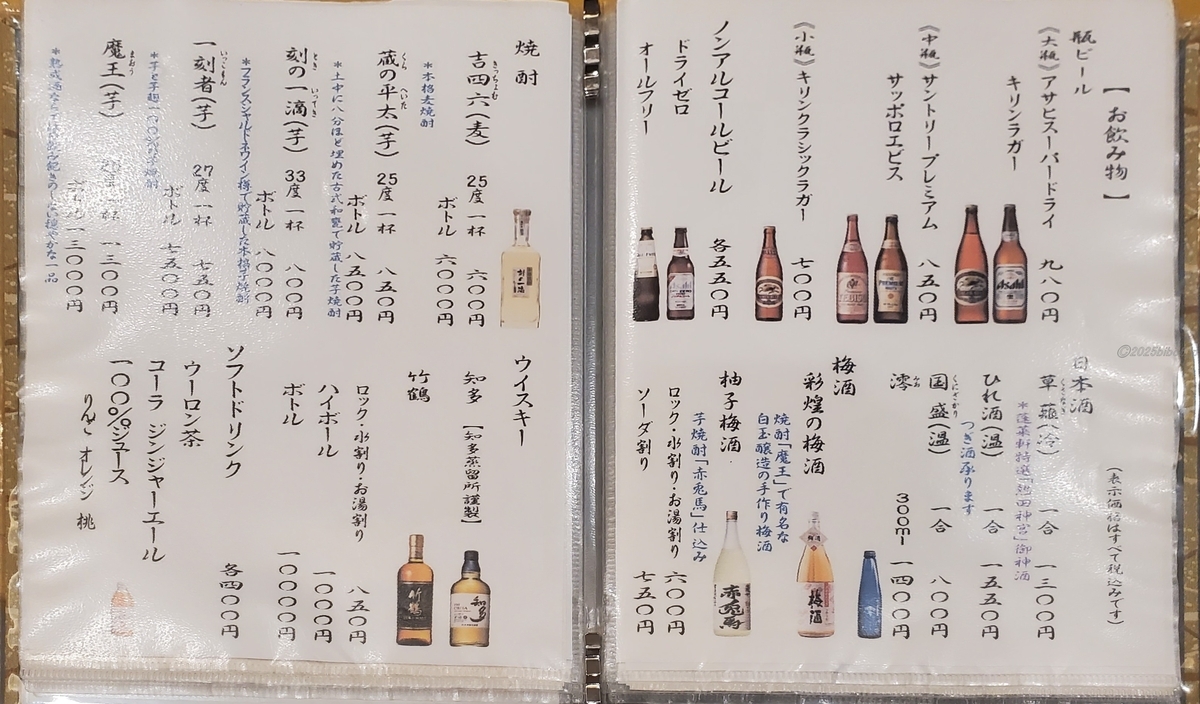 【お飲み物】
瓶ビール
《大瓶》アサヒスーパードライ 九八〇円
キリンラガー
《中瓶》サントリープレミアム 八五〇円
サッポロエビス
《小瓶》キリンクラシックラガー 七〇〇円
ノンアルコールビール 各五五〇円
ドライゼロ
オールフリー
(表示価格はすべて税込みです)
日本酒
草薙(冷) 一合 一三〇〇円
*蓬莱軒特選「熱田神宮」御神酒
ひれ酒(温) 一合 一五五〇円
つぎ酒承ります
国盛(温) 一合 八〇〇円
くにざかり
澪 300ml 一四〇〇円
みお
梅酒
彩煌の梅酒
焼酎「魔王」で有名な
白玉醸造の手作り梅酒
柚子梅酒
芋焼酎「赤兎馬」仕込み
ロック・水割り・お湯割り 六〇〇円
ソーダ割り 七五〇円
焼酎
吉四六(麦) 25度 一杯 六〇〇円
きっちょむ
ボトル 六〇〇〇円
*本格麦焼酎
蔵の平太(芋) 25度 一杯 八五〇円
くら へいた
ボトル 八五〇〇円
*土中に八分ほど埋めた古式和甕で貯蔵した芋焼酎
刻の一滴(芋) 33度 一杯 八〇〇円
とき いってき
ボトル 八〇〇〇円
*フランスシャルドネワイン樽で貯蔵した本格芋焼酎
一刻者(芋) 27度 一杯 七五〇円
いっこもん
ボトル 七五〇〇円
*芋と芋麹一〇〇%の芋焼酎
魔王(芋) 25度 一杯 一三〇〇円
まおう
ボトル 一三〇〇〇円
*熟成酒ならではの飲み飽きのしない穏やかな一品
ウイスキー
知多 【知多蒸留所謹製】
竹鶴
ロック・水割り・お湯割り 八五〇円
ハイボール 一〇〇〇円
ボトル 一〇〇〇〇円
ソフトドリンク 各四〇〇円
ウーロン茶
コーラ ジンジャーエール
一〇〇%ジュース
りんご オレンジ 桃